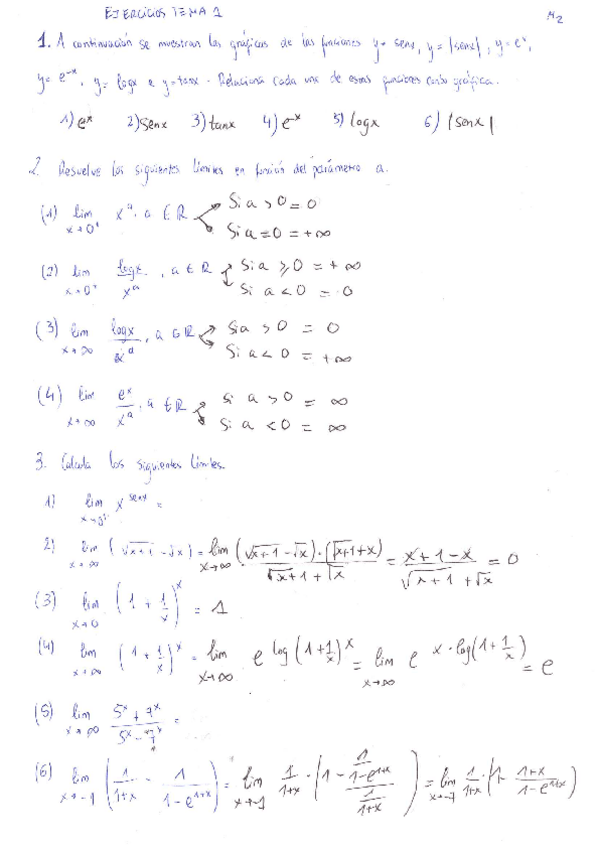 EJERCICIOS TEMA 1
1. A continuación se muestran las gráficas de las funciones y = senx, y = |senx|, y = e^x,
y = e^-x, y = logx e y = tanx. Relaciona cada una de esas funciones con su gráfica.
1) e^x 2) senx 3) tanx 4) e^-x 5) logx 6) |senx|
2. Resuelve los siguientes límites en función del parámetro a.
(1) lim x→0+ x^a. a ∈ R Si a > 0 = 0
Si a = 0 = +∞
(2) lim x→0+ logx / x^a, a ∈ R Si a ⩾ 0 = +∞
Si a < 0 = 0
(3) lim x→∞ logx / x^a, a ∈ R Si a > 0 = 0
Si a < 0 = +∞
(4) lim x→∞ e^x / x^a, a ∈ R Si a > 0 = ∞
Si a < 0 = ∞
3. Calcula los siguientes límites.
1) lim x^senx =
2) lim x→∞ (√x+1 - √x) = lim x→∞ (√x+1 - √x)·(√x+1+x) / √x+1 + √x = x+1-x / √x+1 + √x = 0
(3) lim x→0 (1 + 1/x)^x = 1
(4) lim x→∞ (1 + 1/x)^x = lim x→∞ e^log(1+1/x)^x = lim x→∞ e^x·log(1+1/x) = e
(5) lim x→∞ 5^x + 7^x / 5^x - 7^x =
(6) lim x→-1 (1/1+x - 1/1-e^1+x) = lim x→-1 1/1+x · (1 - 1/1-e^1+x / 1/1+x) = lim x→-1 1/1+x · (1- 1+x/1-e^1+x)